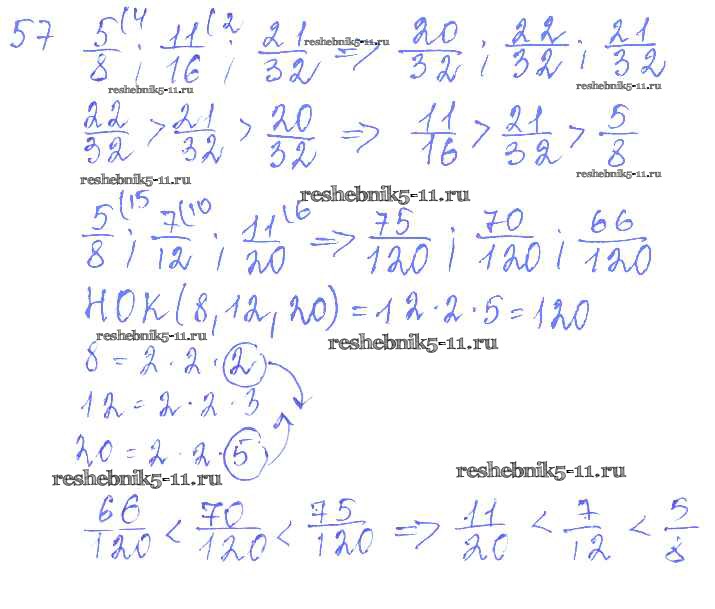 57 5/8 (4 ; 11/16 (2 ; 21/32 => 20/32 ; 22/32 ; 21/32
reshebnik5-11.ru
reshebnik5-11.ru reshebnik5-11.ru
22/32 > 21/32 > 20/32 => 11/16 > 21/32 > 5/8
reshebnik5-11.ru reshebnik5-11.ru
reshebnik5-11.ru
5/8 (15 ; 7/12 (10 ; 11/20 (6 => 75/120 ; 70/120 ; 66/120
НОК(8,12,20) = 12·2·5 = 120
reshebnik5-11.ru reshebnik5-11.ru
8 = 2·2·2
12 = 2·2·3
20 = 2·2·5
reshebnik5-11.ru reshebnik5-11.ru
66/120 < 70/120 < 75/120 => 11/20 < 7/12 < 5/8